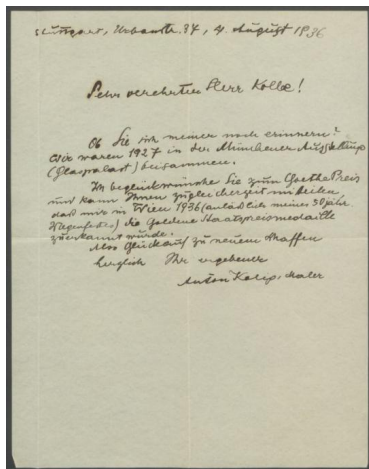 Stuttgart, Urbanstr. 34, 4. August 1936
Sehr verehrter Herr Kolbe!
Ob Sie sich meiner noch erinnern?
Wir waren 1927 in der Münchener Ausstellung
(Glaspalast) beisammen.
Ich beglückwünsche Sie zum Goethe Preis
und kann Ihnen zugleich mitteilen,
daß mir in Wien 1936 (anläßlich meines 50 jähr.
die Goldene Staatspreismedaille
zuerkannt wurde.
Also Glückauf zu neuem Schaffen
herzlich Ihr ergebener
Anton Kolig, Maler